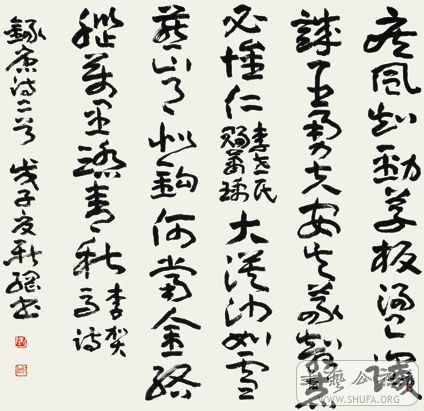 疾風知勁草板蕩識
誠臣勇夫安識義智者
必懷仁 李世民 賜蕭瑀 大漠沙如雪
燕山月似鉤何當金絡
腦快走踏清秋 李賀 馬詩
錄唐詩二首 戊子夏 書
WWW.SHUFA.ORG